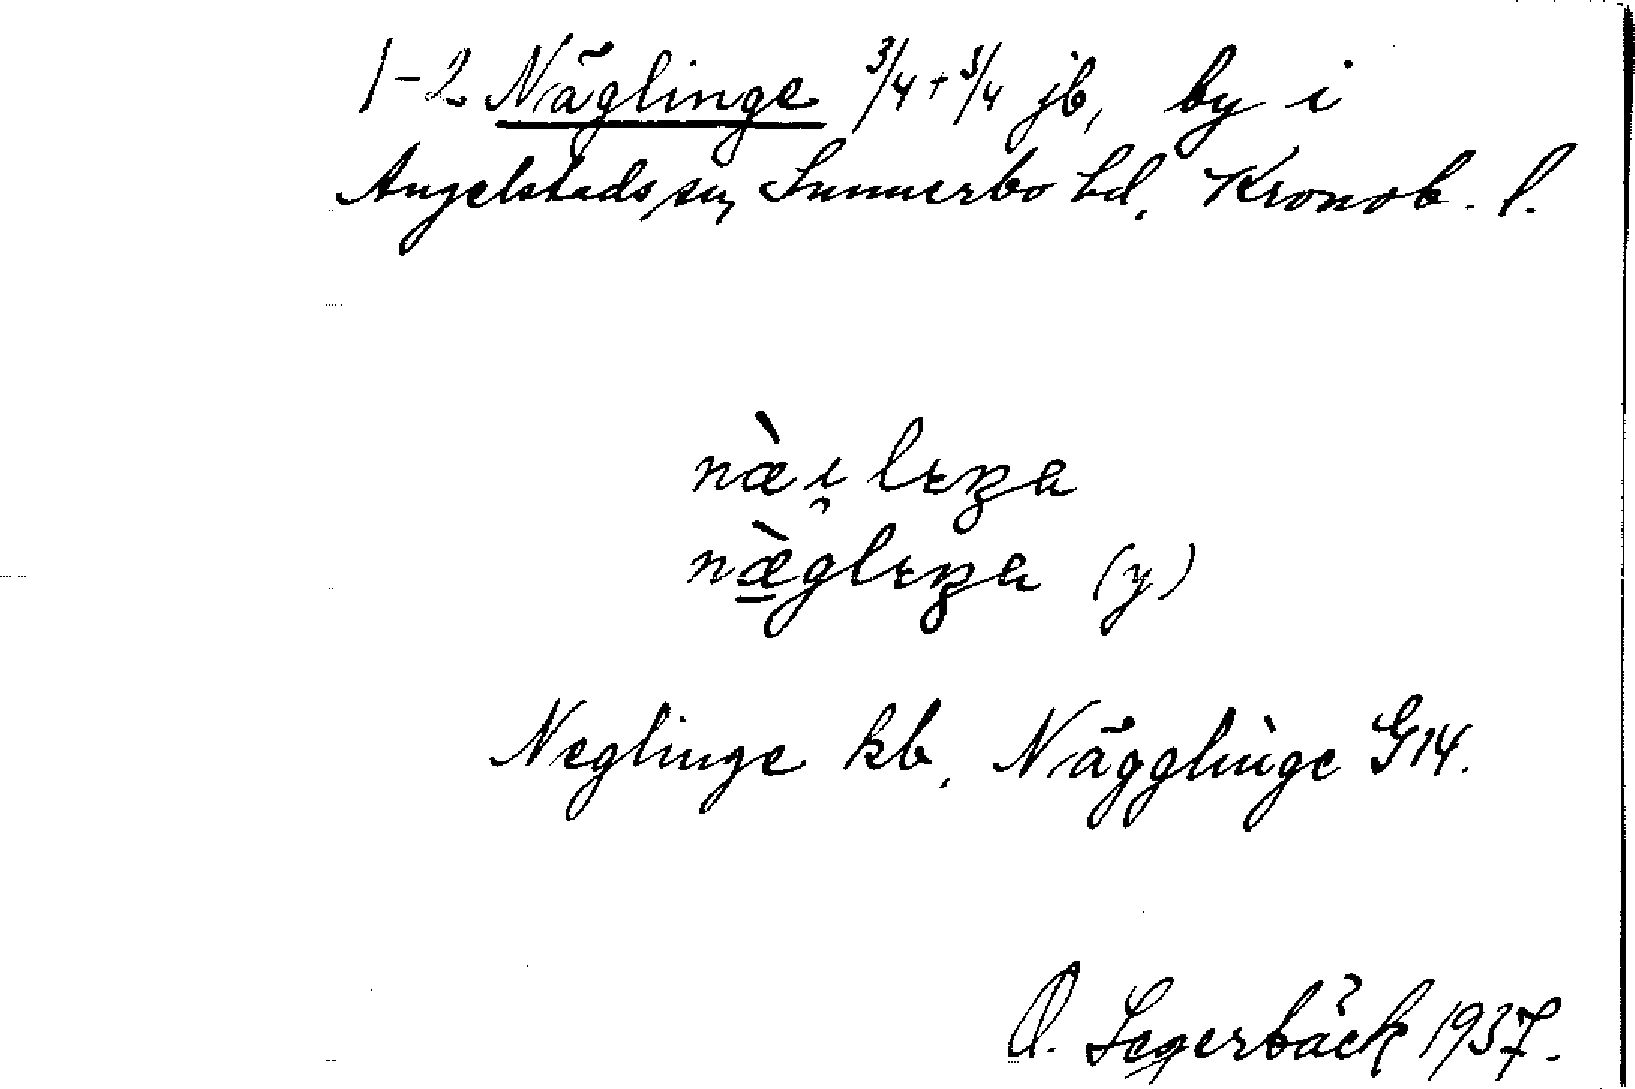 1-2 Näglinge 3/4 + 3/4 jb, by i
Angelstads sn, Sunnerbo hd. Kronob. l.
næ̀i̯leŋa
næ̀gleŋa (y)
Neglinge kb, Nägglinge G14.
O. Segerbäck 1937.